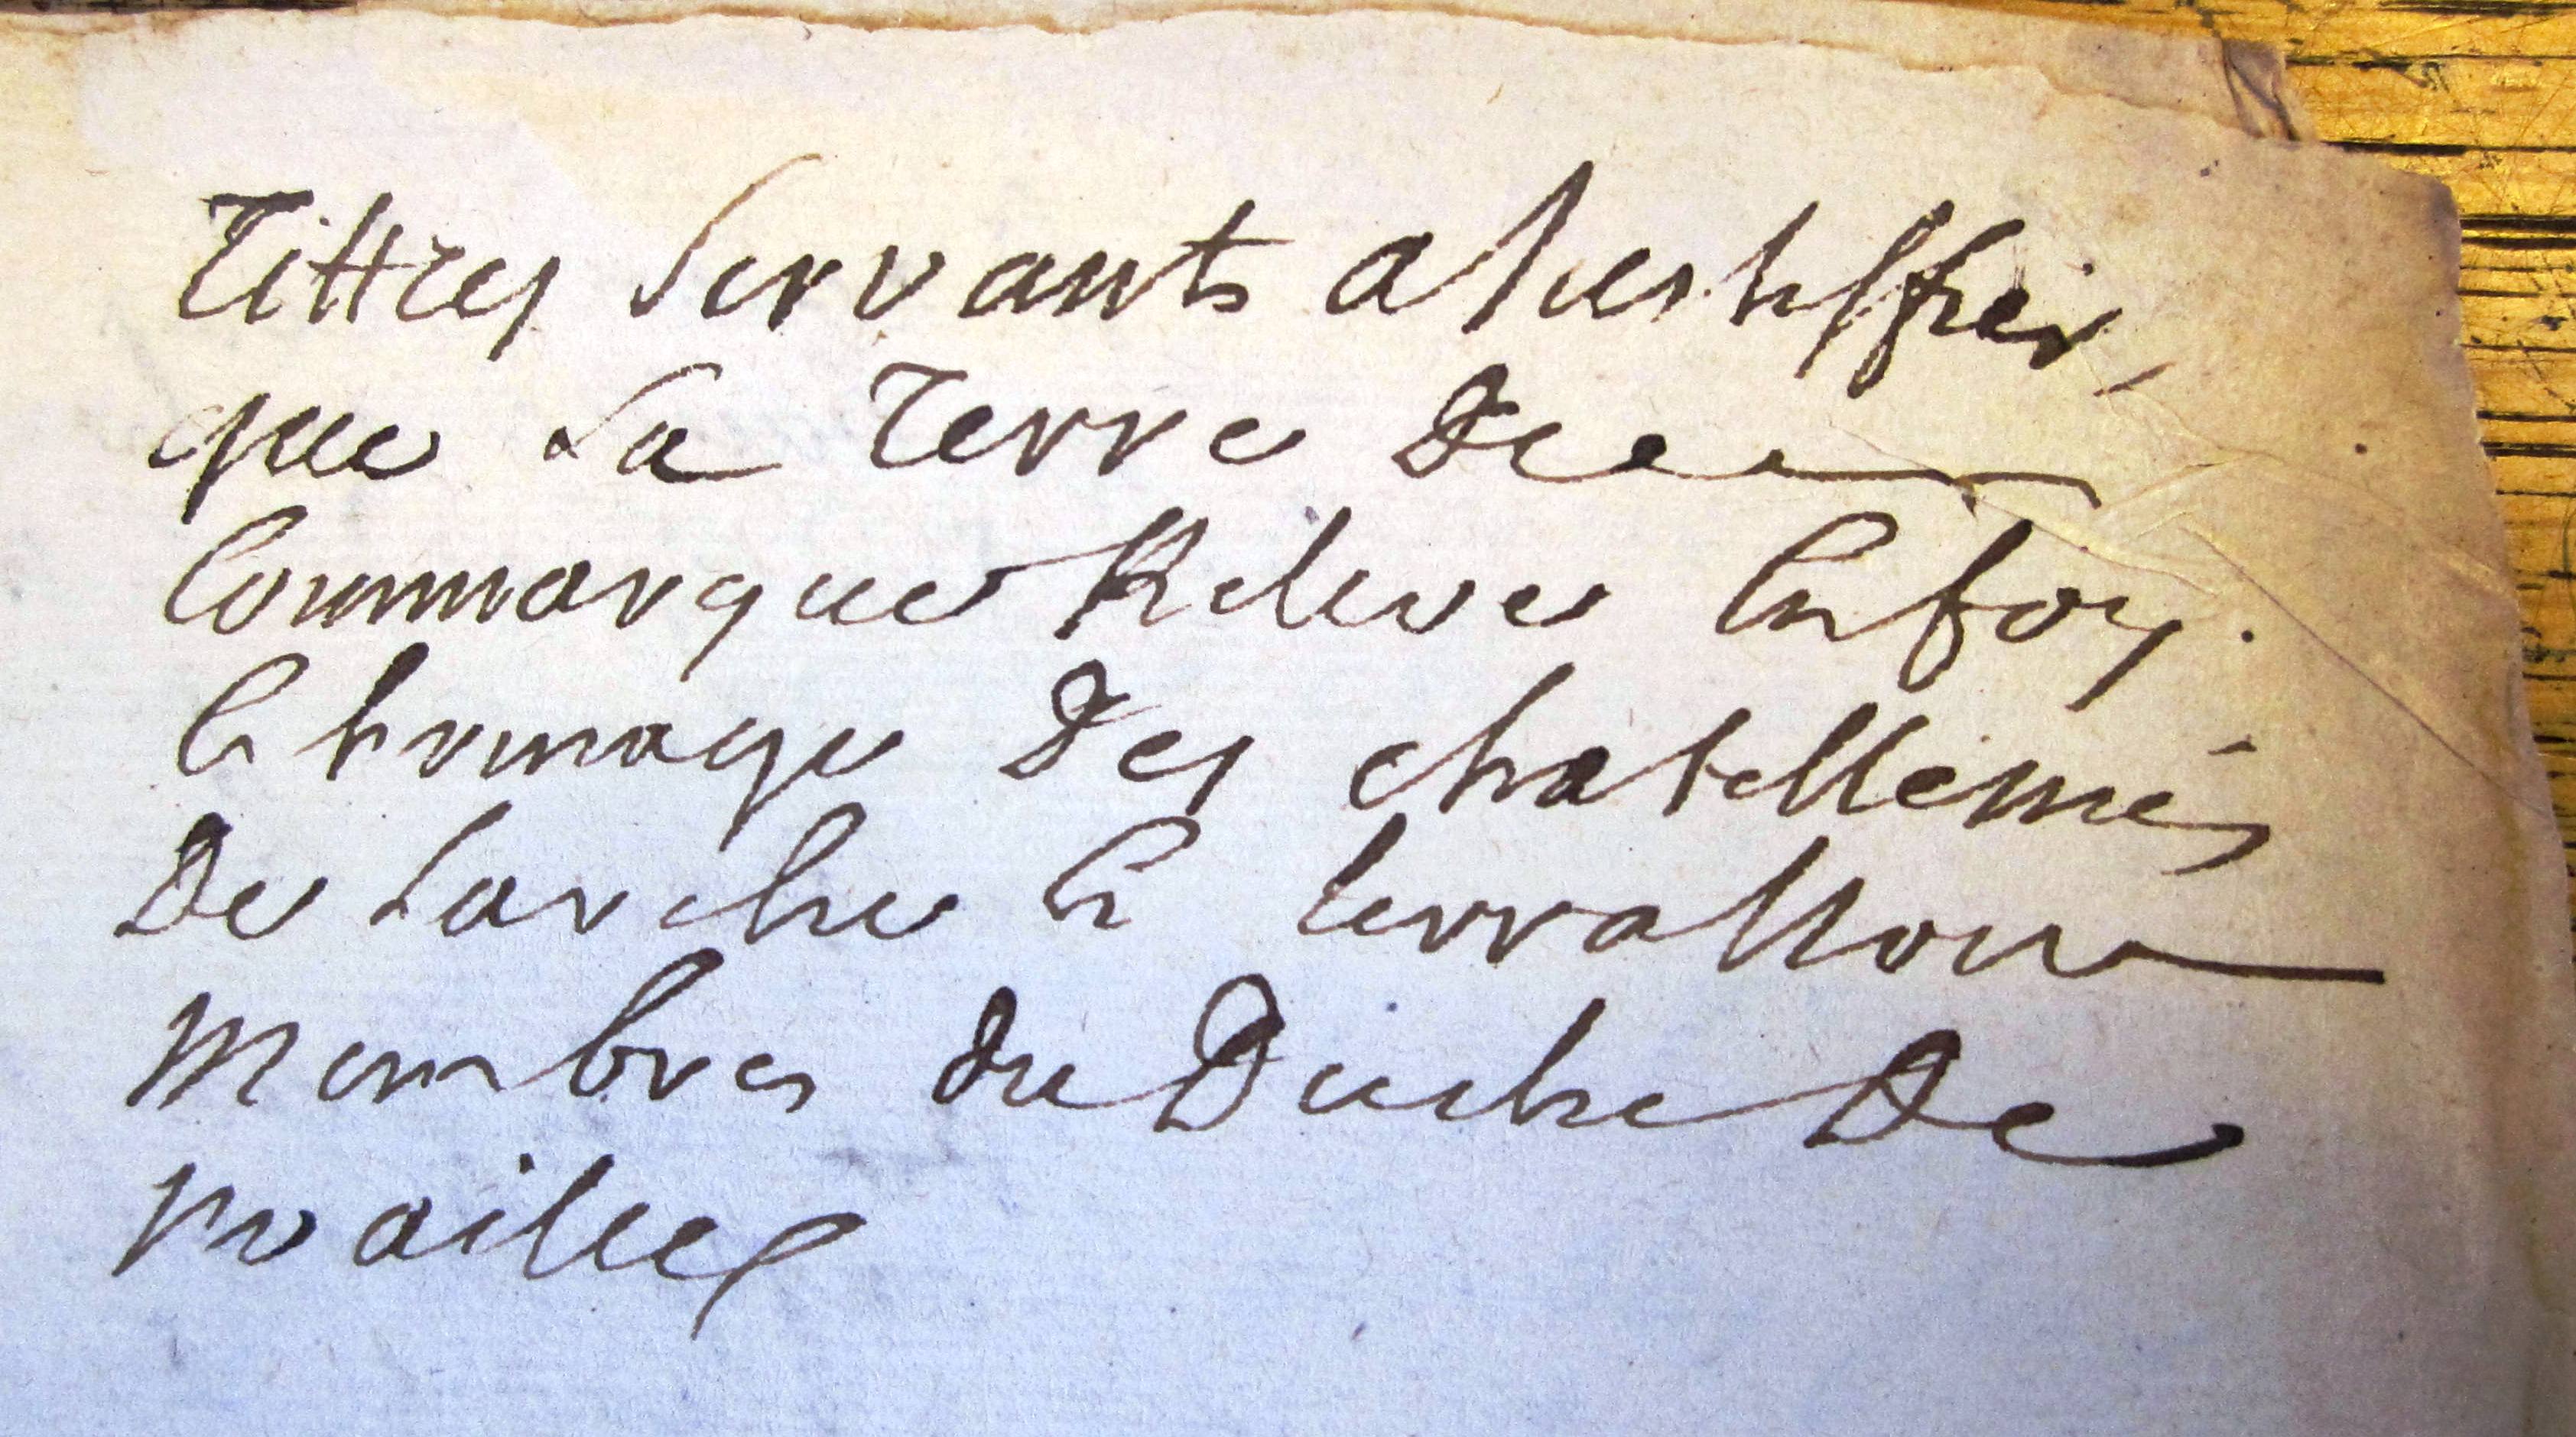 Tittres servants a justiffier
que la terre De
Commarque Releve En foy
Et homage Des chatellenies
De Larche Et terrasson
membres du Duche De
noailles